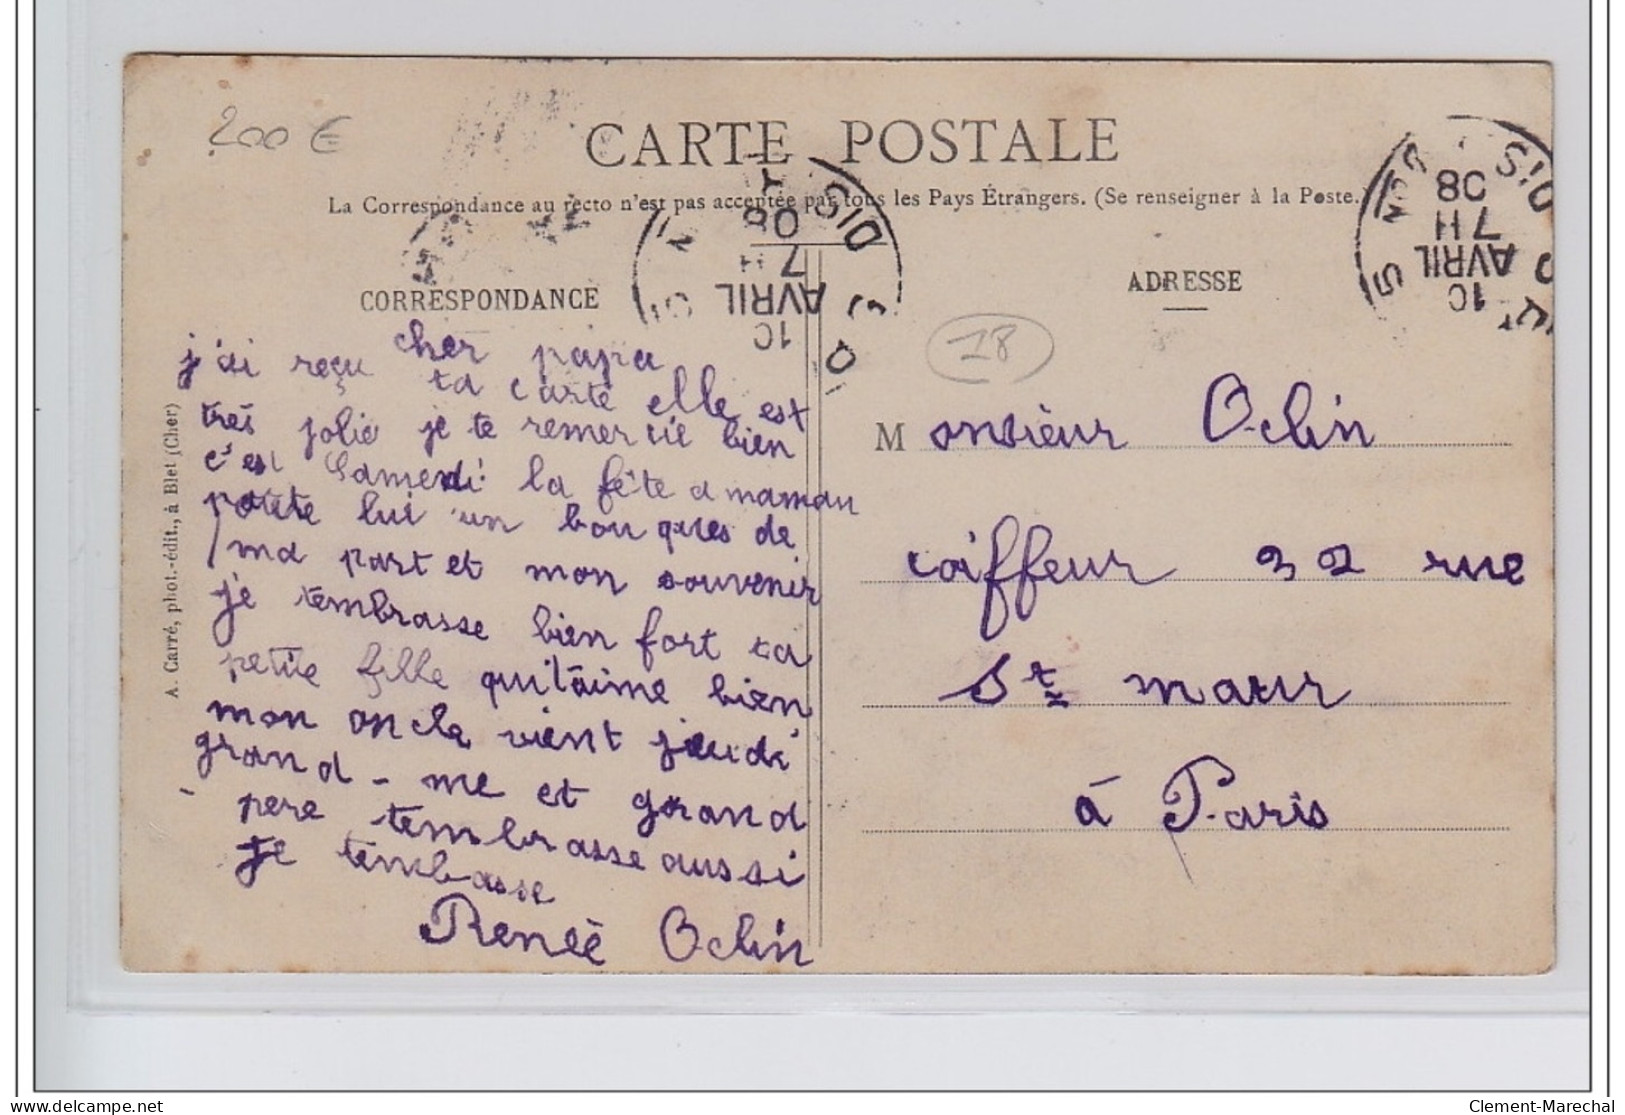 200 €
CARTE POSTALE
La Correspondance au recto n'est pas acceptée par tous les Pays Étrangers. (Se renseigner à la Poste.)
CORRESPONDANCE
cher papa
j'ai reçu ta carte elle est
très jolie je te remercie bien
c'est Samedi la fête a maman
porte lui un bouques de
ma part et mon souvenir
je tembrasse bien fort ta
petite fille quit'aime bien
mon oncle vient jeudi
grand - me et grand
père tembrasse aussi
Je tembasse
Renée Oclin
A. Carré, phot.-édit., à Blet (Cher)
10
AVRIL
7 H
08
DIS
ADRESSE
18
Monsieur Oclin
coiffeur 32 rue
St maur
à Paris
10
AVRIL
7 H
08
DIS
Clement-Marechal